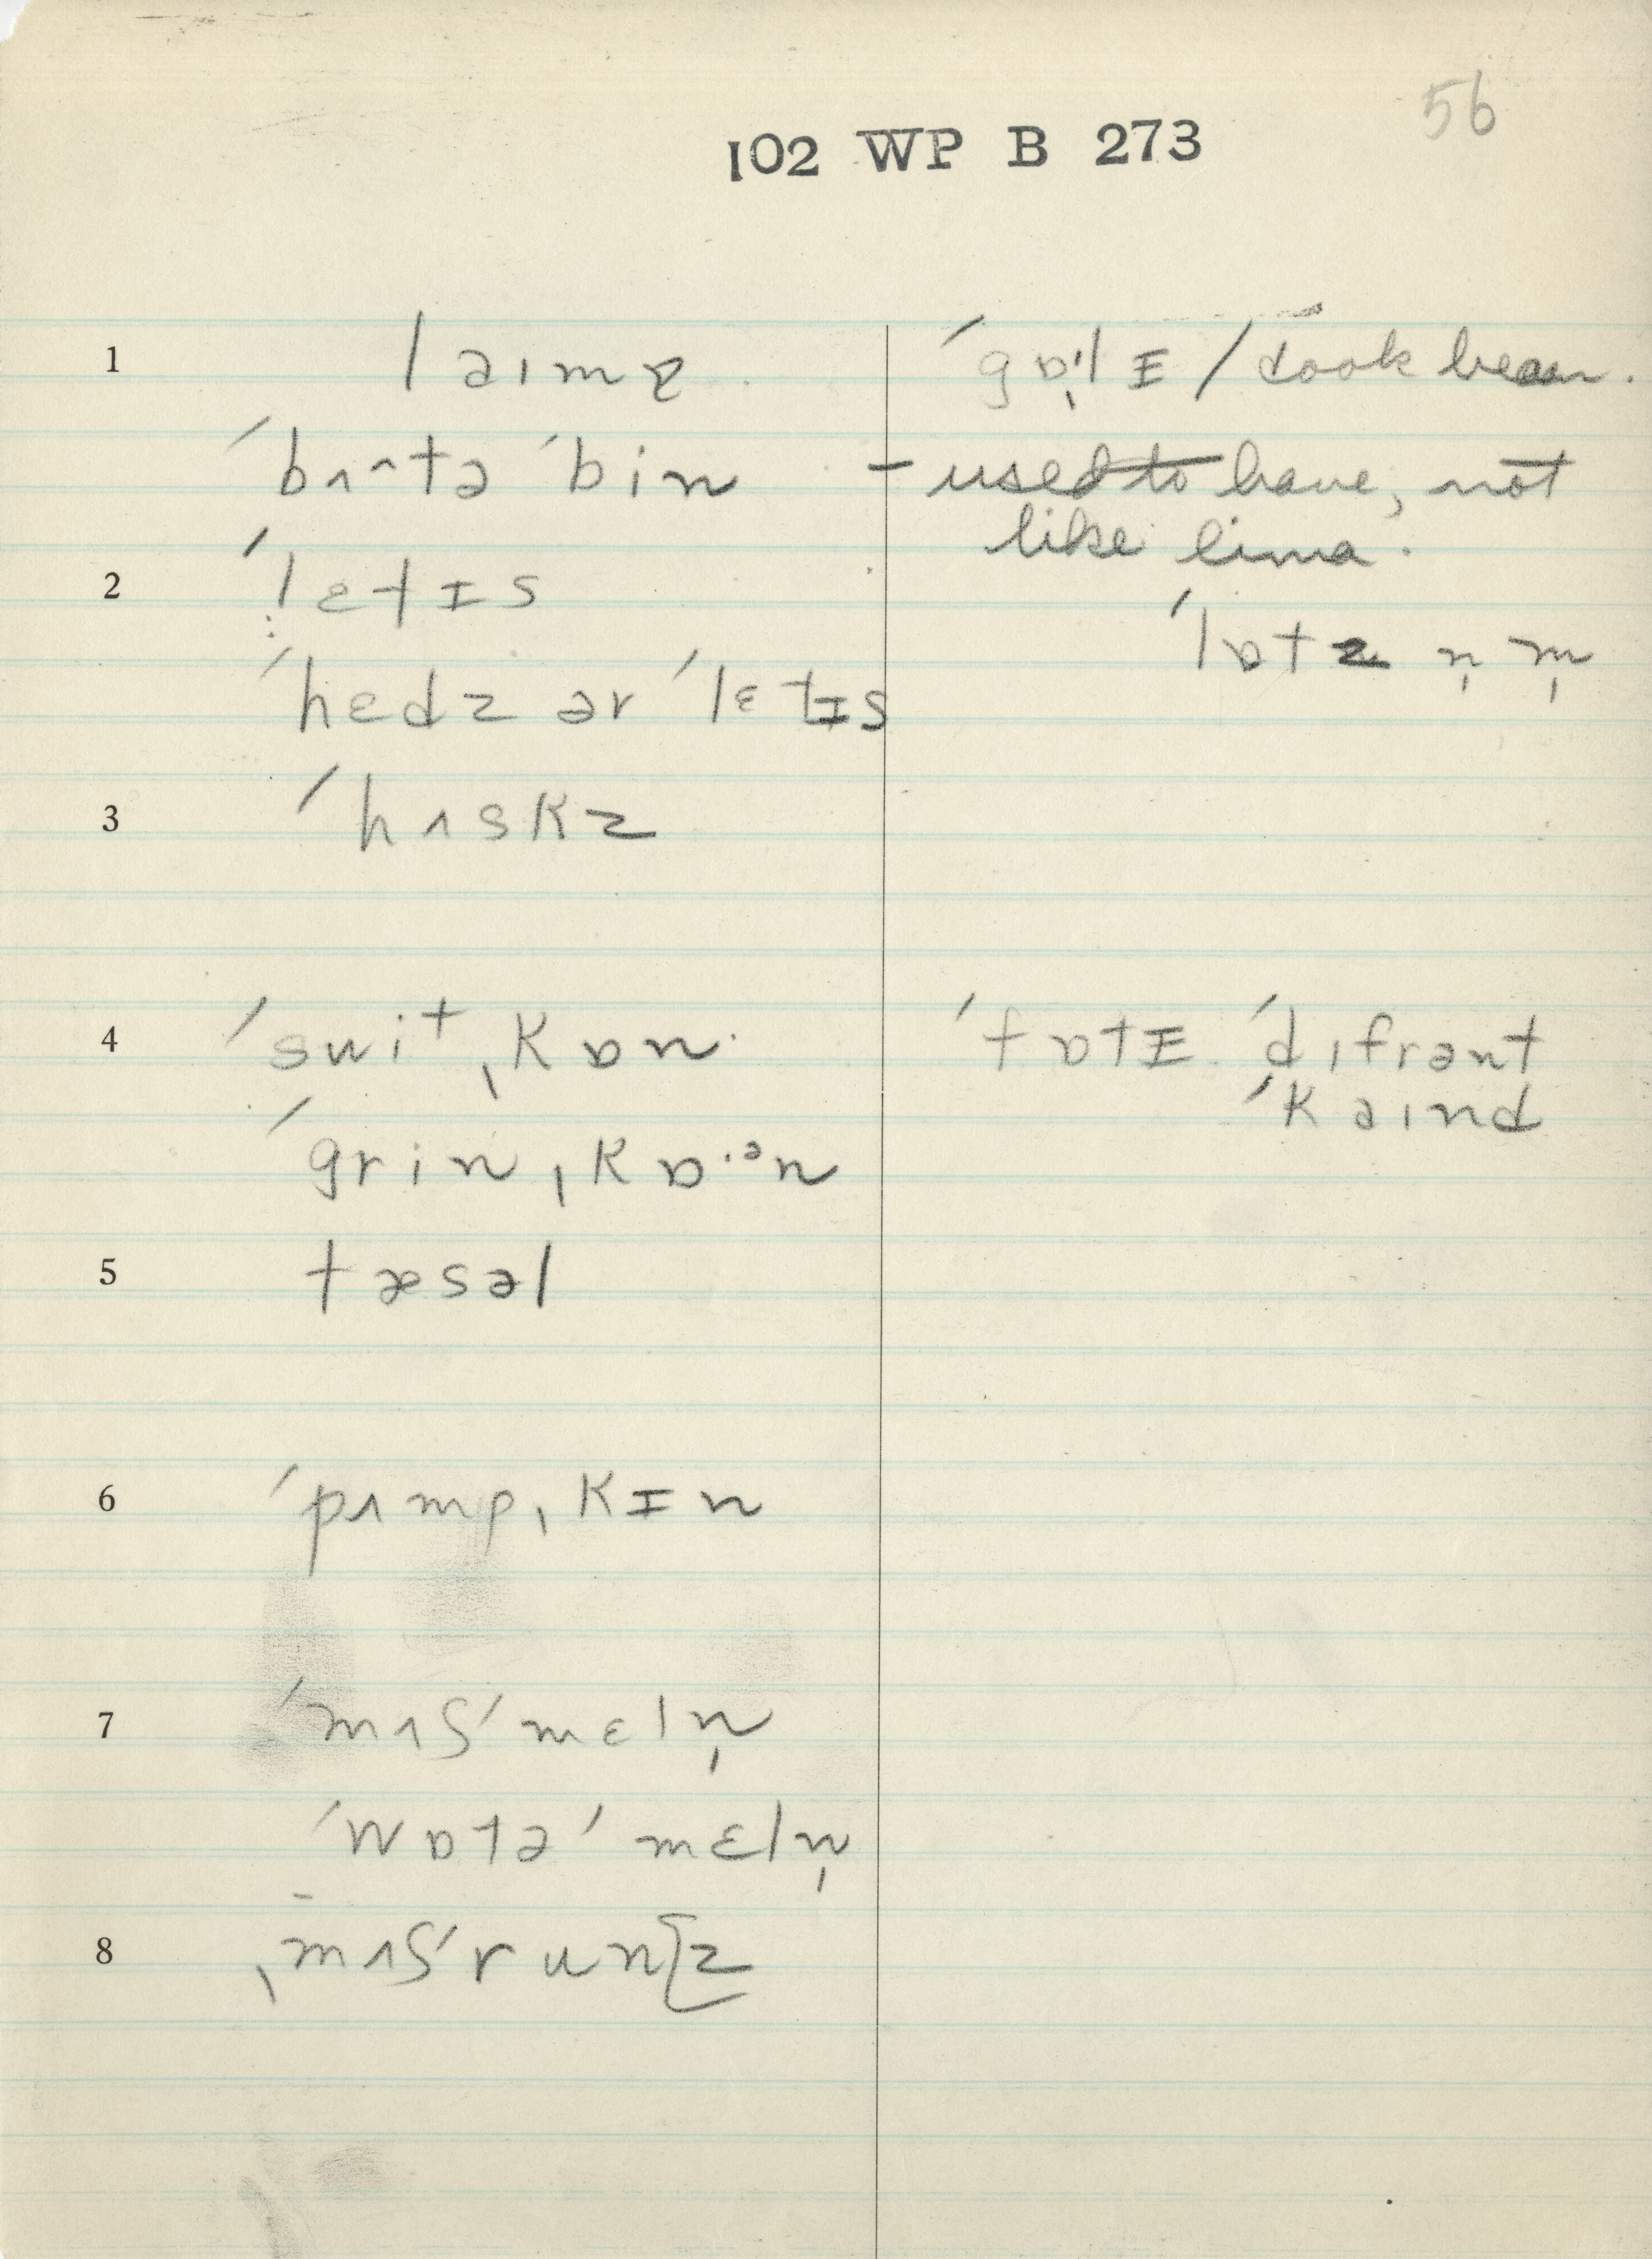 56
102 WP B 273
1 laɪmə ˈgɒl̩ɪ / look bean.
ˈbʌ^tə ˈbin - used to have, not
like lima.
2 ˈlɛtɪs
ˈlɒtz n̩ m̩
ˈhɛdz ər ˈlɛtɪs
3 ˈhʌskz
4 ˈswit ˌkɒn ˈfɒtɪ ˈdɪfrənt
ˈkaɪnd
ˈgrin ˌkɒ·ᵊn
5 tæsəl
6 ˈpʌmpˌkɪn
7 ˈmʌʃˈmɛln̩
ˈwɒtəˈmɛln̩
8 ˌmʌʃˈrunz